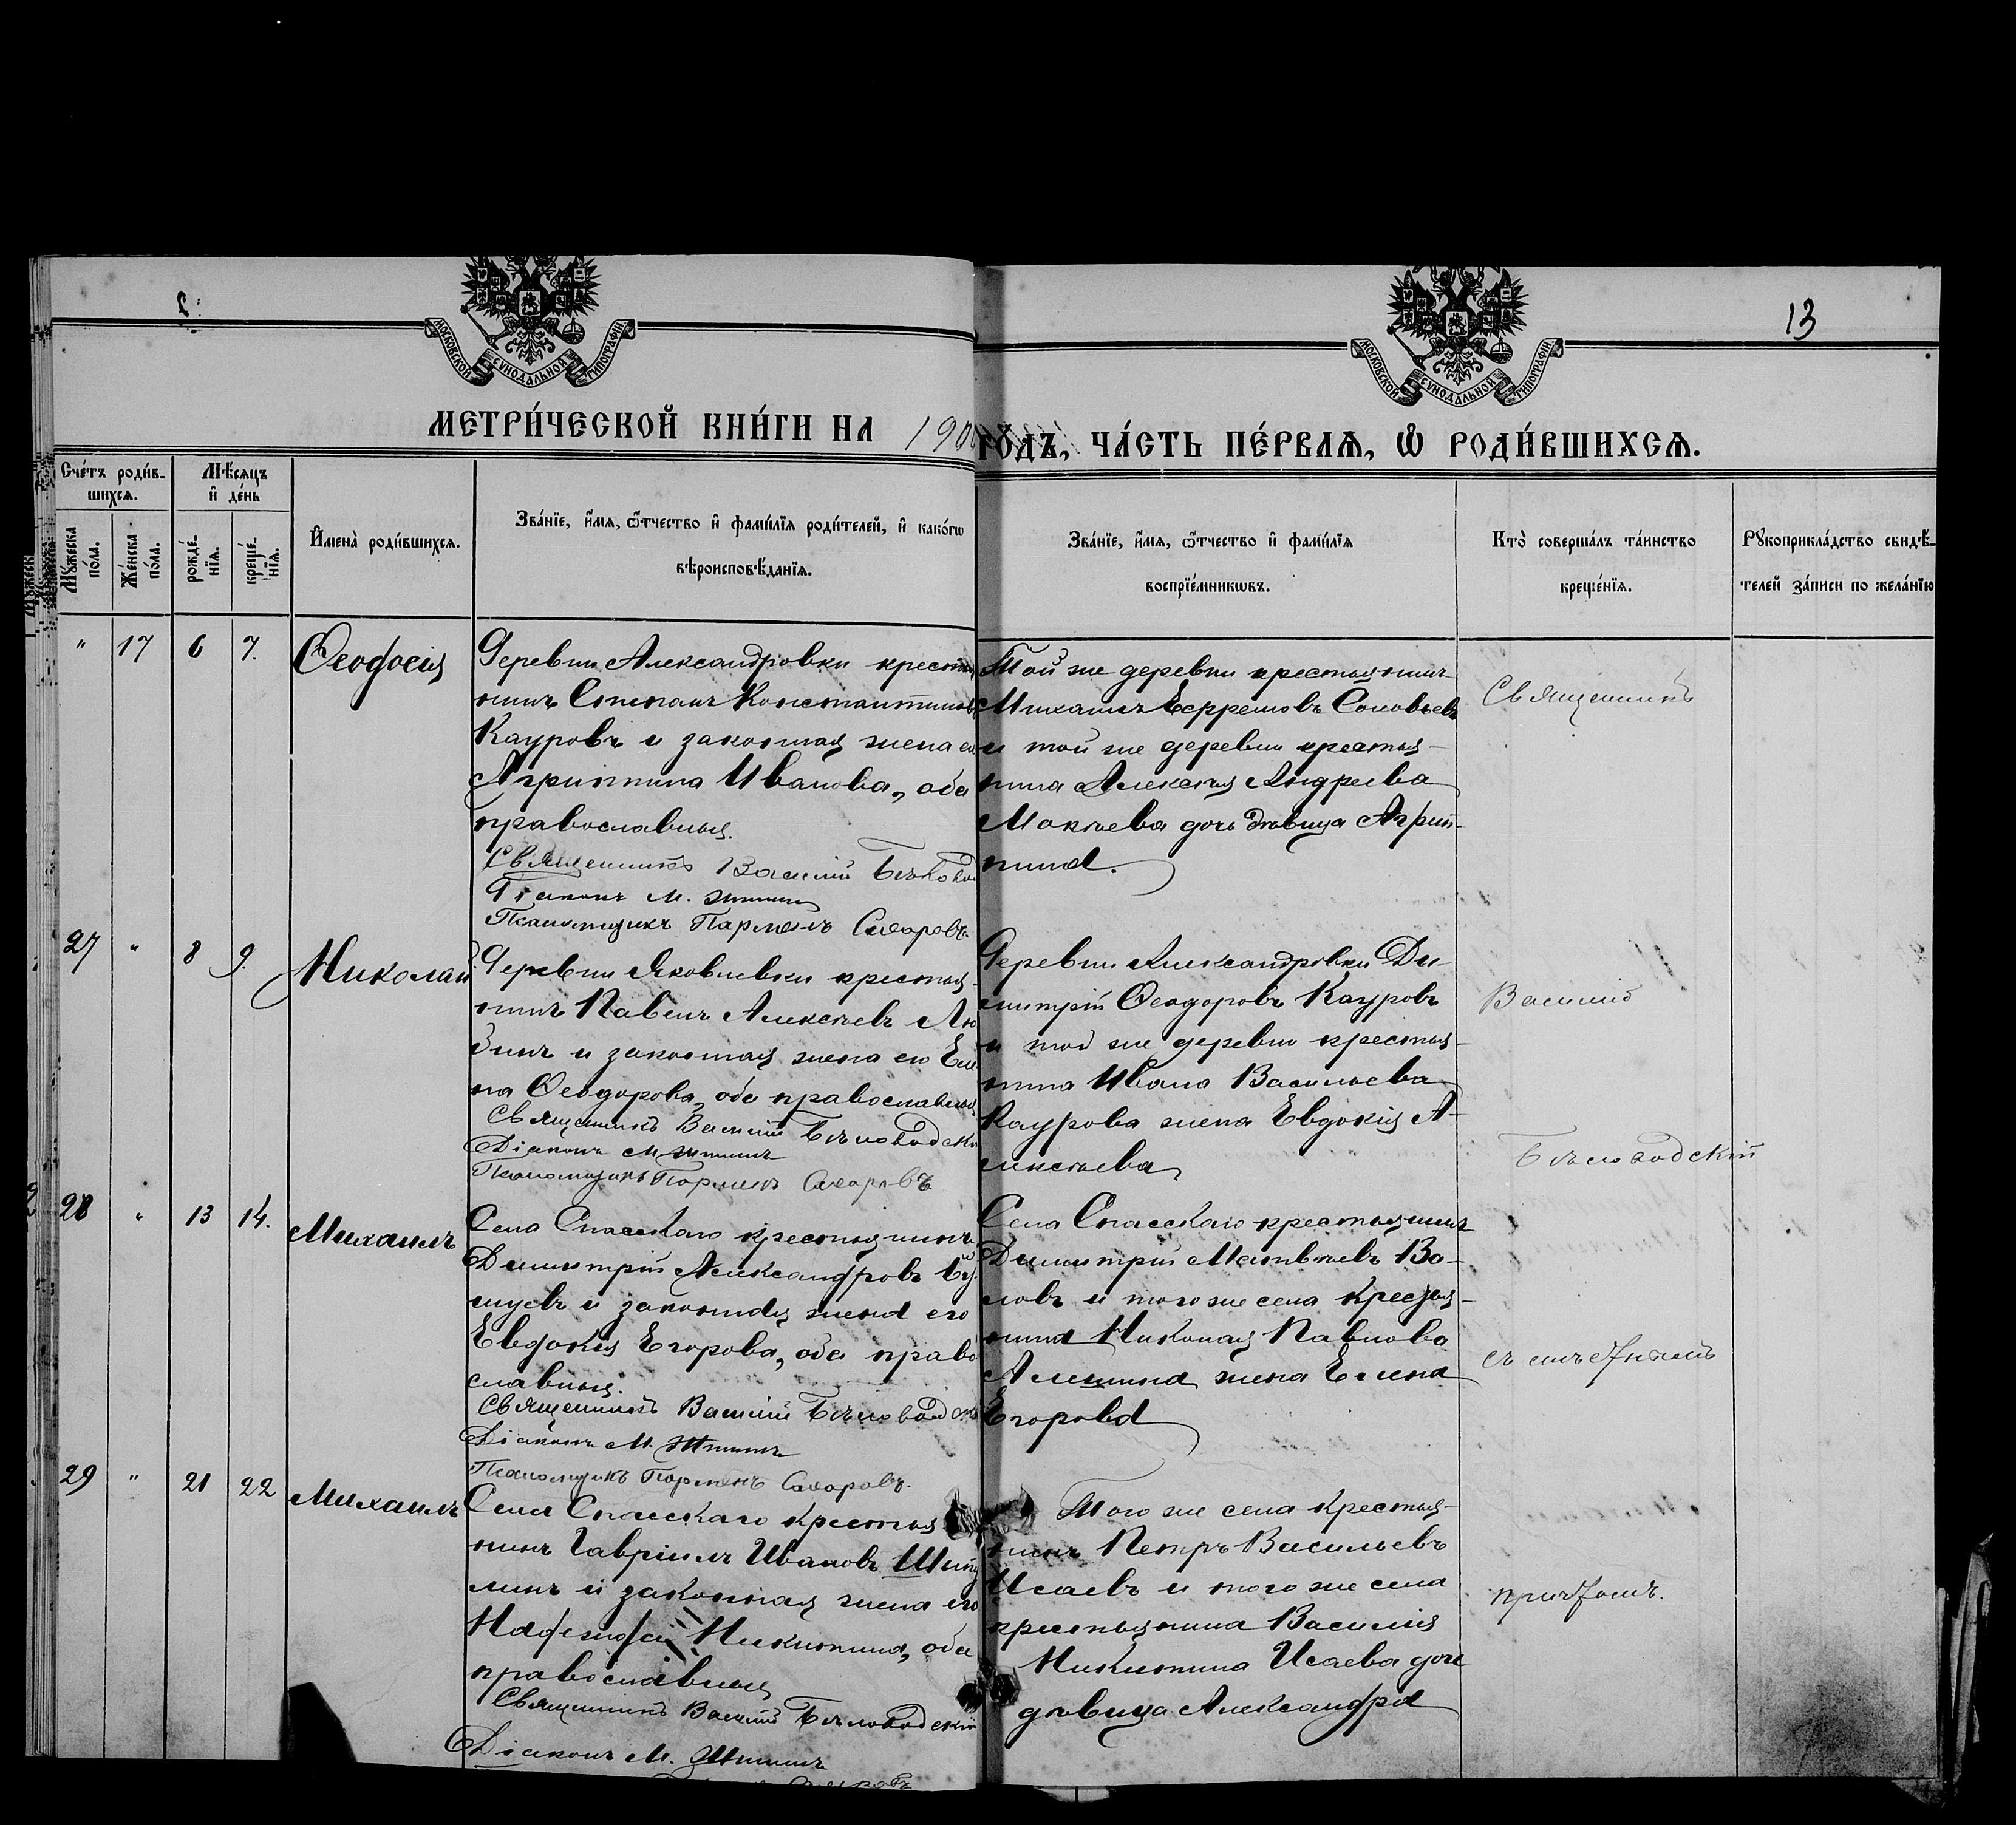 13
МОСКОВСКОЙ СѴНОДАЛЬНОЙ ТИПОГРАФІИ
МОСКОВСКОЙ СѴНОДАЛЬНОЙ ТИПОГРАФІИ
МЕТРИ́ЧЕСКОЙ КНИ́ГИ НА 190
ГО́ДЪ, ЧА́СТЬ ПЕ́РВАѦ, Ѡ҆ РОДИ́ВШИХСѦ.
Сче́тъ роди́в-
шихсѧ.
Мѣ́сѧцъ
и҆ де́нь
Мꙋ́жеска
по́ла.
Же́нска
по́ла.
рожде́-
нїѧ.
креще́-
нїѧ.
И҆мена̀ роди́вшихсѧ.
Зва́нїе, и҆́мѧ, ѻ҆́тчество и҆ фами́лїѧ роди́телей, и҆ како́гѡ
вѣроисповѣ́данїѧ.
Зва́нїе, и҆́мѧ, ѻ҆́тчество и҆ фами́лїѧ
воспрїе́мникѡвъ.
Кто̀ соверша́лъ та́инство
креще́нїѧ.
Рꙋкоприкла́дство свидѣ́-
телей за́писи по жела́нїю
" 17 6 7. Ѳеодосія
Деревни Александровки крестья
нинъ Степанъ Константиновъ
Кауровъ и законная жена его
Агриппина Иванова, оба
православныя.
Священникъ Василій
Діаконъ М.
Псаломщикъ Парменъ Сахаровъ.
Той же деревни крестьянинъ
Михаилъ Ефремовъ Соловьевъ
и той же деревни крестья-
нина Алексѣя Андреева
Мокѣева дочь дѣвица Агрип-
пина.
Священникъ
27 " 8 9. Николай
Деревни Яковлевки крестья-
нинъ Павелъ Алексѣевъ Лю
бинъ и законная жена его Еле
на Ѳеодорова, оба православныя
Священникъ Василій Бѣловодскій
Діаконъ М.
Псаломщикъ Парменъ Сахаровъ
Деревни Александровки Ди-
митрій Ѳеодоровъ Кауровъ
и той же деревни крестья-
нина Ивана Васильева
Каурова жена Евдокія А-
лексѣева
Василій
Бѣловодскій
28 " 13 14. Михаилъ
Села Спасскаго крестьянинъ
Димитрій Александровъ
и законная жена его
Евдокія Егорова, оба право
славныя.
Священникъ Василій Бѣловодскій
Діаконъ М.
Псаломщикъ Парменъ Сахаровъ.
Села Спасскаго крестьянинъ
Димитрій Матвѣевъ Во-
ловъ и того же села крестья-
нина Николая Павлова
Алешина жена Елена
Егорова
съ
29 " 21 22 Михаилъ
Села Спасскаго крестья
нинъ Гавріилъ Ивановъ
и законная жена его
Никитина, оба
православныя
Священникъ Василій Бѣловодскій
Діаконъ М.
Того же села крестья-
нинъ Петръ Васильевъ
Исаевъ и того же села
крестьянина Василія
Никитина Исаева дочь
дѣвица Александра
причтомъ.